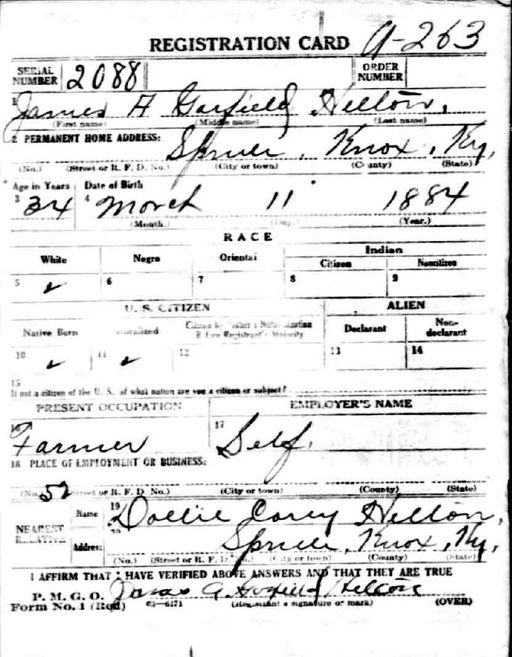 REGISTRATION CARD A-263
SERIAL NUMBER 2088 ORDER NUMBER
1 James A Garfield Helton,
(First name) (Middle name) (Last name)
2 PERMANENT HOME ADDRESS: Spruce, Knox, Ky,
(No.) (Street or R. F. D. No.) (City or town) (County) (State)
Age in Years Date of Birth
3 34 4 March 11 1884
(Month.) (Day.) (Year.)
RACE
White Negro Oriental Indian
Citizen Noncitizen
5 ✓ 6 7 8 9
U. S. CITIZEN ALIEN
Native Born Naturalized Citizen by Father's Naturalization Before Registrant's Majority Declarant Non-declarant
10 ✓ 11 ✓ 12 13 14
15
If not a citizen of the U. S. of what nation are you a citizen or subject?
PRESENT OCCUPATION EMPLOYER'S NAME
16 Farmer 17 Self.
18 PLACE OF EMPLOYMENT OR BUSINESS:
(No.) 52 (Street or R. F. D. No.) (City or town) (County) (State)
NEAREST RELATIVE Name 19 Dollie Helton,
Address 20 Spruce, Knox, Ky,
(No.) (Street or R. F. D. No.) (City or town) (County) (State)
I AFFIRM THAT I HAVE VERIFIED ABOVE ANSWERS AND THAT THEY ARE TRUE
P. M. G. O. James A. Garfield Helton
Form No. 1 (Red) 03-6171 (Registrant's signature or mark) (OVER)